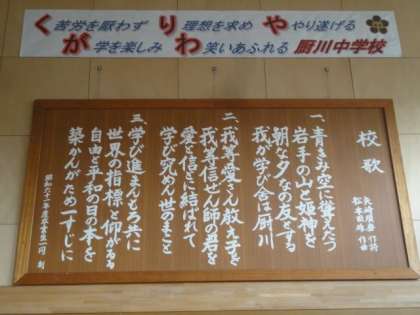 く苦労を厭わず り理想を求め ややり遂げる
が学を楽しみ わ笑いあふれる 厨川中学校
校歌
作詞
作曲
一、青くすみ空に聳えたつ
岩手の山と姫神を
朝な夕なの友とする
我が学び舎は厨川
二、我等愛さん教え子を
我等信ぜん師の君を
愛と信とに結ばれて
学び究めん世のまこと
三、学び進まんもろ共に
世界の指標と仰がるる
自由と平和の日の本を
築かんがため一すじに
昭和六十一年度卒業生一同 制